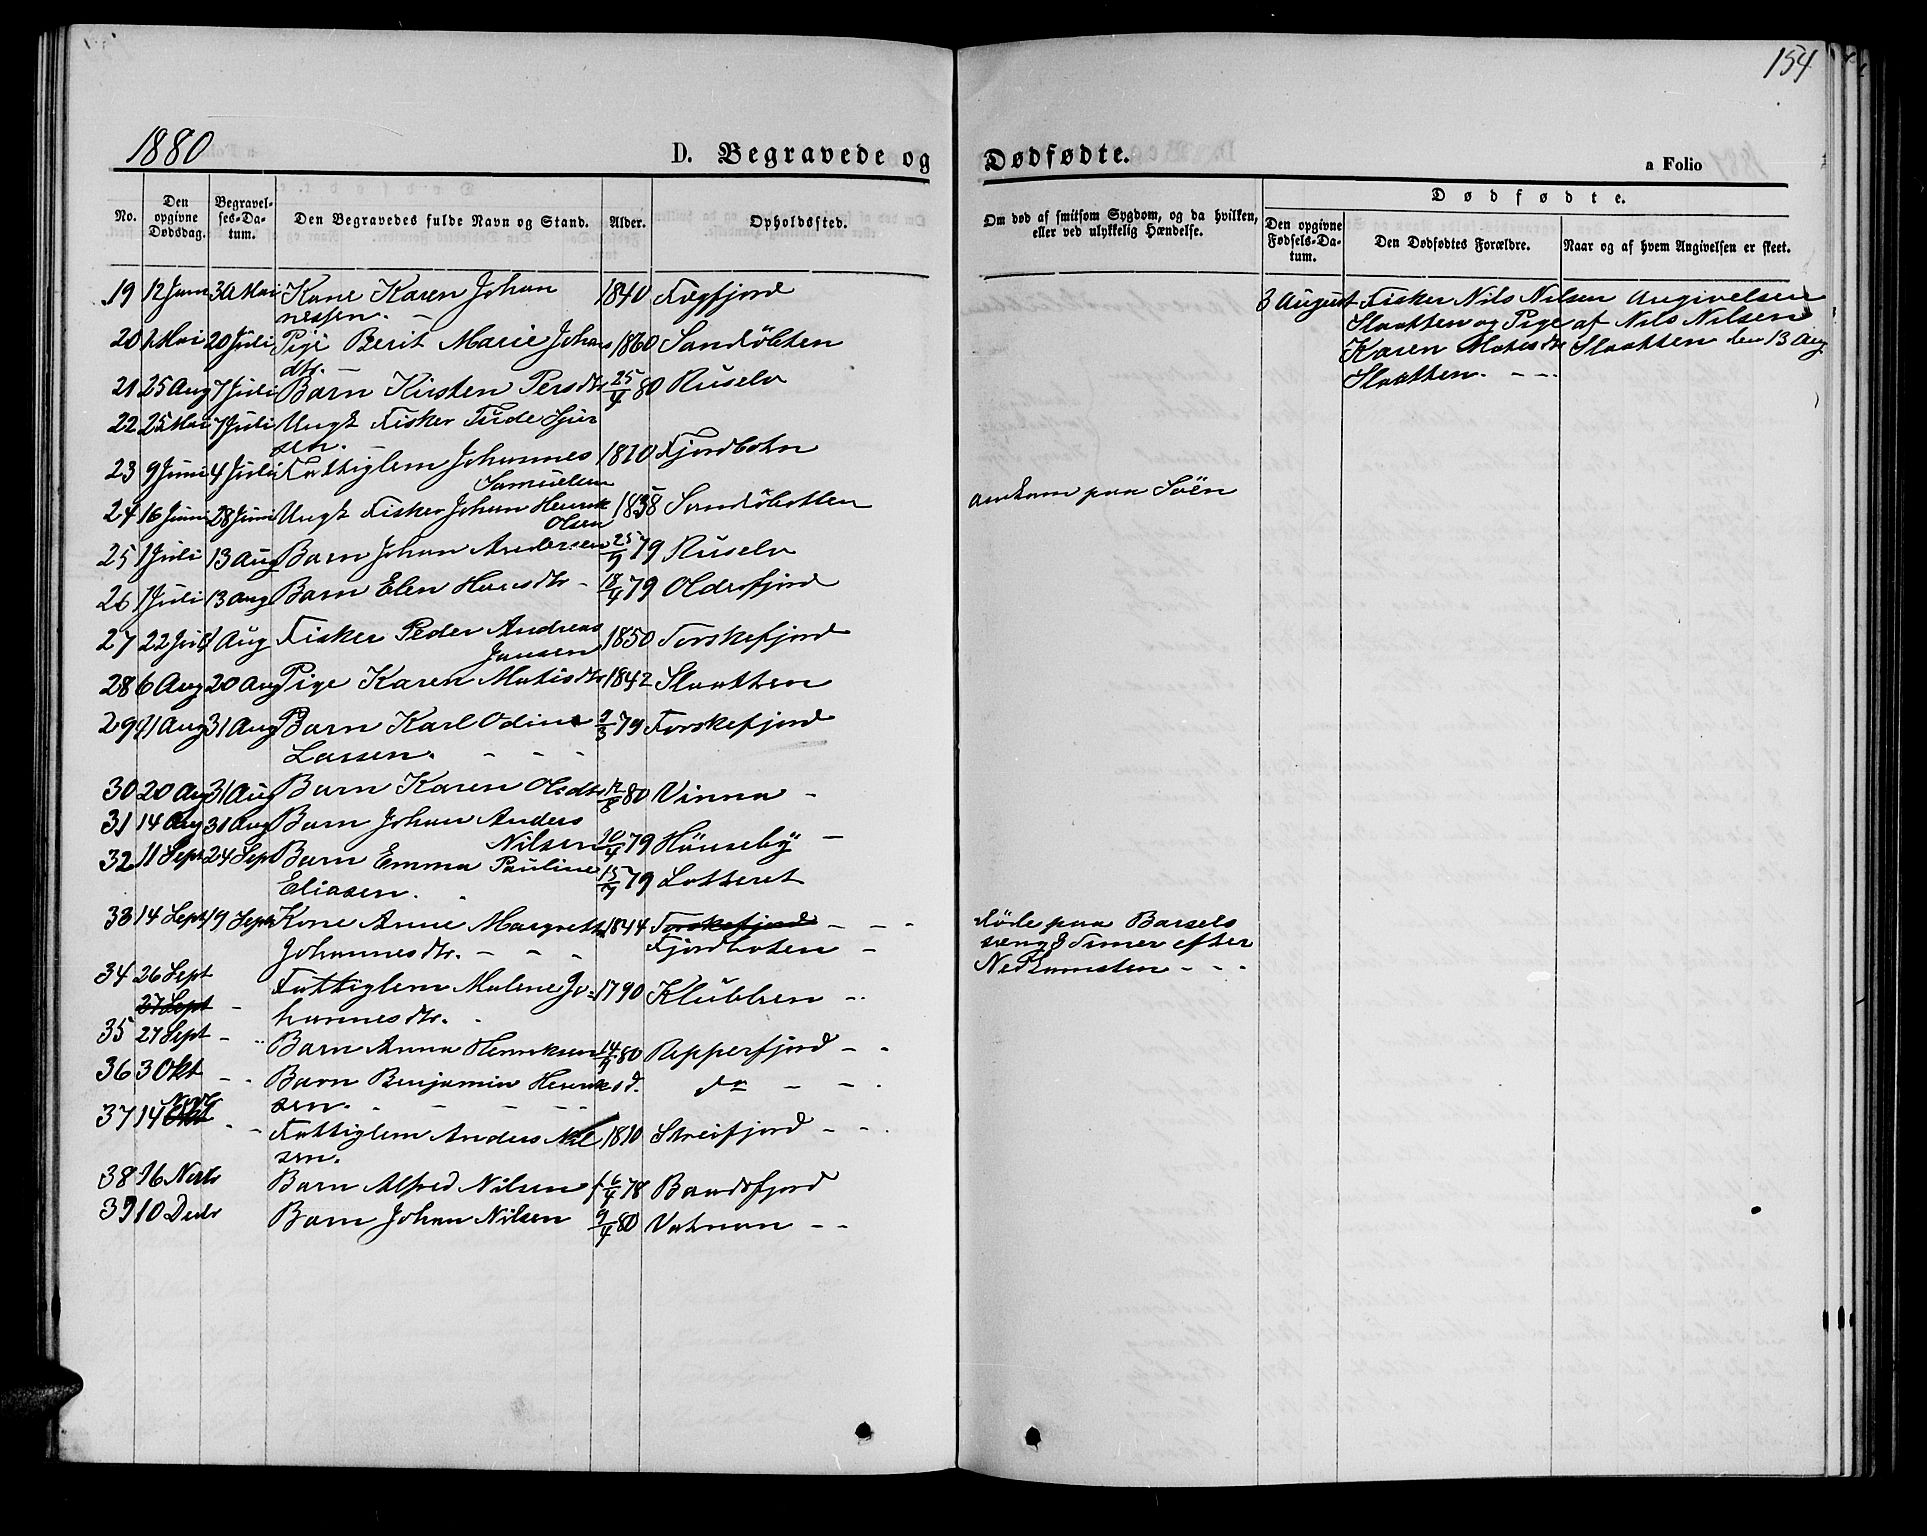 154
1880
D. Begravede og Dødfødte.
a Folio
No.
Den opgivne Dødsdag.
Begravelses-Datum.
Den Begravedes fulde Navn og Stand.
Alder.
Opholdssted.
Om død af smitsom Sygdom, og da hvilken, eller ved ulykkelig Hændelse.
Dødfødte.
Den opgivne Fødsels-Datum.
Den Dødfødtes Forældre.
Naar og af hvem Angivelsen er skeet.
19 12 Juni 30 Mai Kone Karen Johan 1840
nessen. –
20 1 Mai 20 Juli Pige Berit Marie Johans 1860 Sandöbten
dtr. –
21 25 Aug 7 Juli Barn Kirsten Persdtr 25/4 80 Ruselv
22 25 Mai 7 Juli Ungk Fisker
sen.
23 9 Juni 4 Juli Fattiglem Johannes 1810 Fjordbotn
Samuelsen
24 16 Juni 28 Juni Ungk Fisker Johan Henrik 1838 Sandöbotten
Olsen
omkom paa Söen
25 1 Juli 13 Aug Barn Johan Andersen 25/9 79 Ruselv
26 1 Juli 13 Aug Barn Elen Hansdtr – 18/4 79 Oldersfjord
27 22 Juli 1 Aug Fisker Peder Andreas 1850 Torskefjord
Jansen
28 6 Aug 20 Aug Pige Karen Matisdtr 1842 Slaatten
29 11 Aug 31 Aug Barn Karl Odin 9/3 79 Torskefjord
Larsen. – – –
30 20 Aug 31 Aug Barn Karen Olsdtr 12/8 80 Vinna –
31 14 Aug 31 Aug Barn Johan Anders
Nilsen 10/4 79 Hönseby –
32 11 Sept 24 Sept Barn Emma Pauline 15/7 79 Lotteret
Eliasen.
33 14 Sept 19 Sept Kone Anne Margrethe 1844 Torskefjord – – –
Johannesdtr. – – – Fjordboten –
döde paa Barsels
seng 8 Timer efter
Nedkomsten – – –
34 26 Sept Fattiglem Malene Jo- 1790 Klubben –
27 Sept – hannesdtr.
35 27 Sept – Barn Anna Henriksen 14/9 80 Repperfjord – –
36 3 Okt – – Barn Benjamin Henrik s d. do – –
sen. – – – –
37 14 Okt Novr – – Fattiglem Anders Nil 1810 Skreifjord – –
sen.
38 16 Novbr Barn Alfred Nilsen 6/4 78 Bandsfjord
39 10 Decbr Barn Johan Nilsen 9/4 80 Vatnan – –
8 August Fisker Nils Nilsen Angivelsen
Slaatten og Pige af Nils Nilsen
Karen Matisdtr Slaatten den 13 Aug
Slaatten. – – –